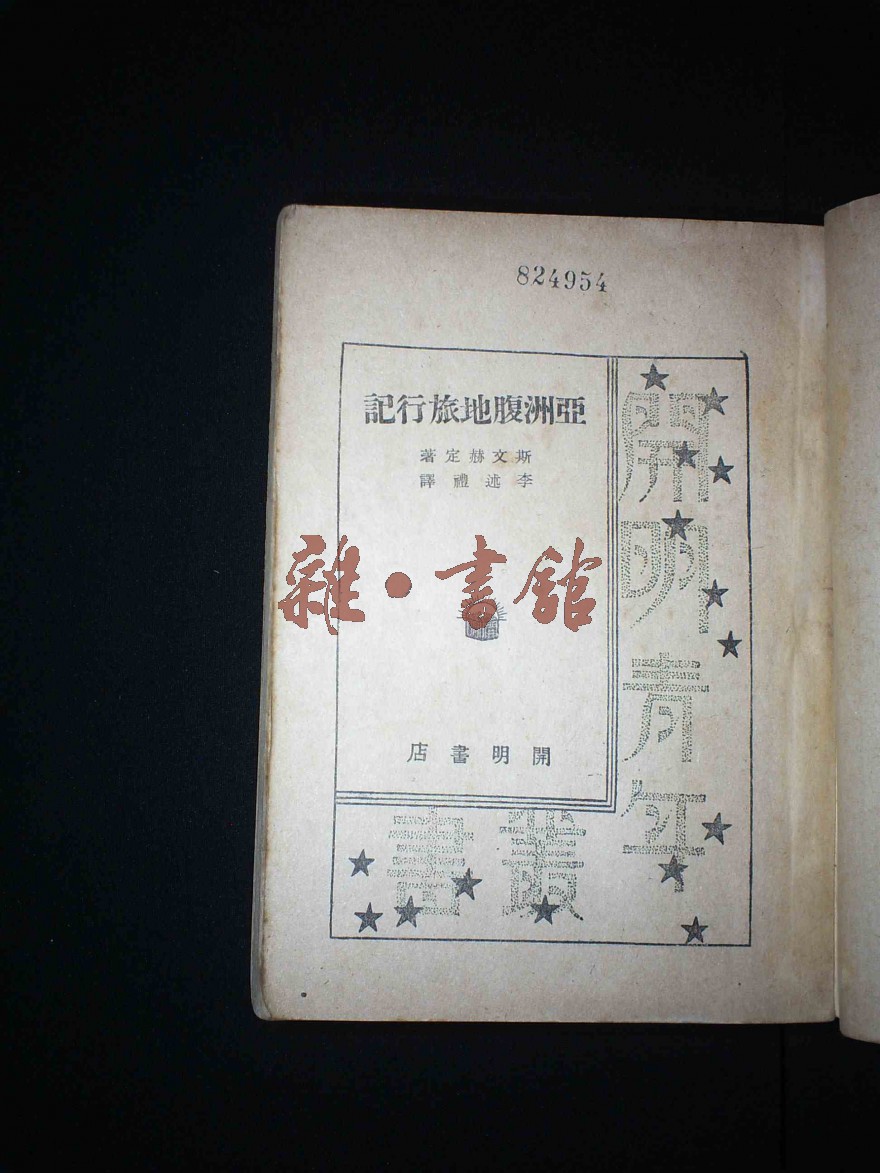 824954
亞洲腹地旅行記
斯文赫定著
李述禮譯
雜·書館
開明書店
開明青年
叢書